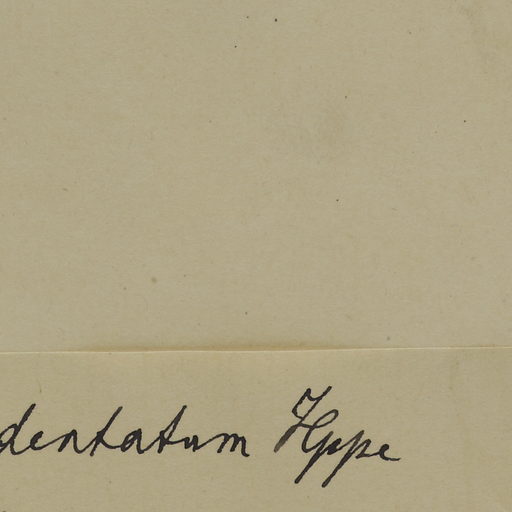 dentatum Hppe